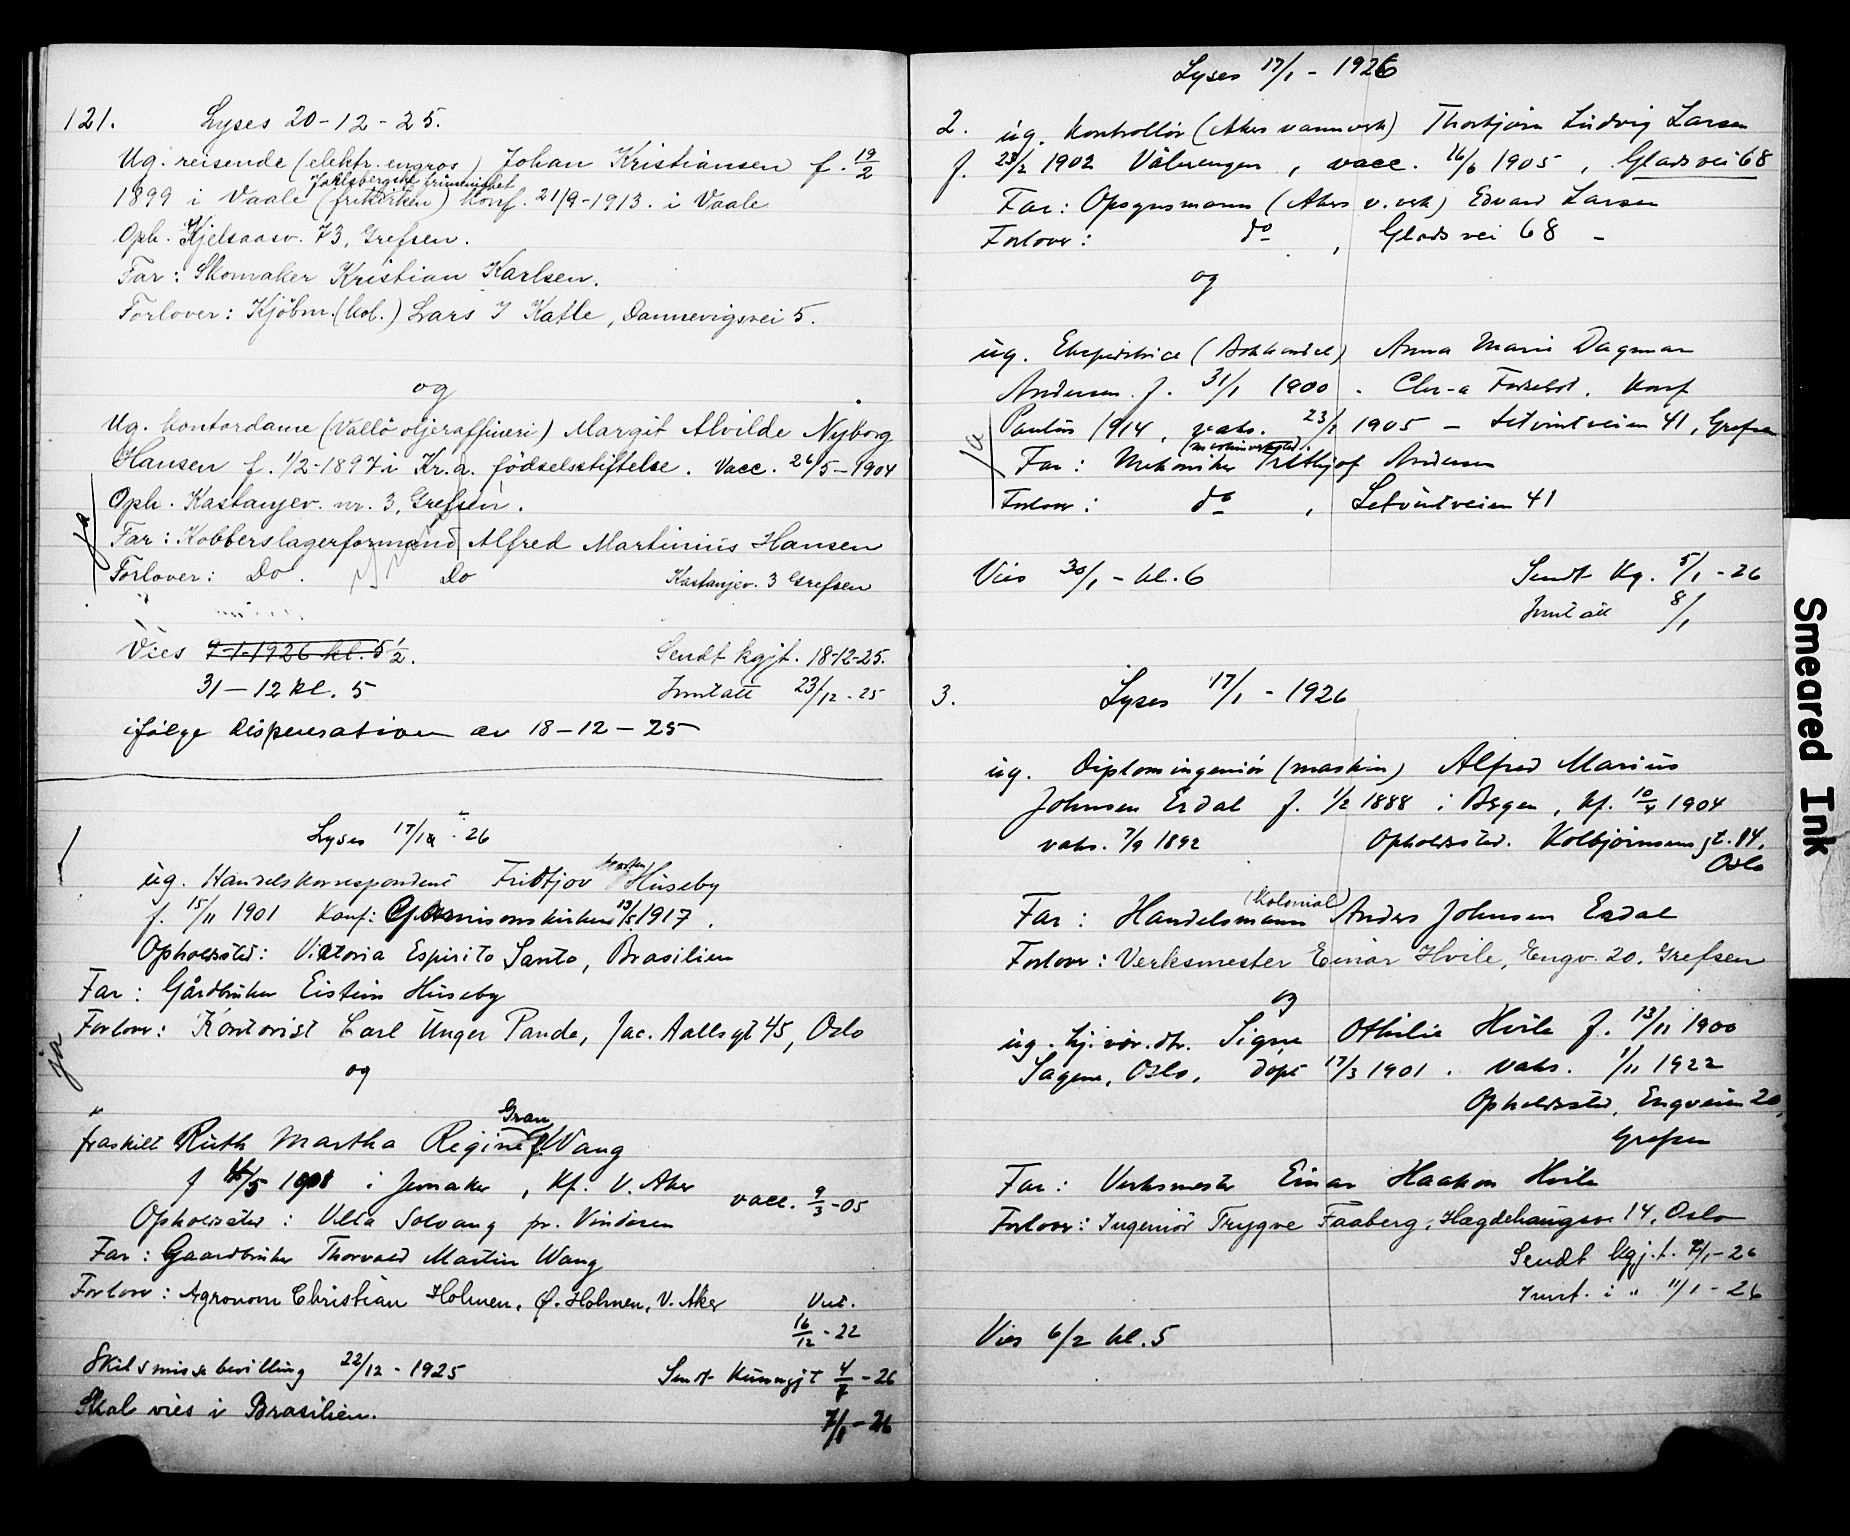 121. Lyses 20-12-25.
Ug. reisende (elektr. engros) Johan Kristiansen f. 19/2
Jarlsbergske frimenighet
1899 i Vaale (frikirken) konf. 21/9-1913. i Vaale
Oph. Kjelsaasv. 73, Grefsen.
Far: Skomaker Kristian Karlsen.
Forlover: Kjöbm. (kol.) Lars I Katle, Dannevigsvei 5.
og
Ug. kontordame (Vallö oljeraffineri) Margit Alvilde Nyborg
Hansen f. 1/2-1897 i Kr.a. födselsstiftelse. Vacc. 26/5-1904
Oph. Kastanjev. nr. 3, Grefsen.
ja
Far: Kobberslagerformand Alfred Martinius Hansen
Forlover: Do. Do Kastanjev. 3 Grefsen
Vies 9-1-1926 kl. 5 1/2. Sendt kgjt. 18-12-25.
31-12 kl. 5 Inntatt 23/12-25
ifölge dispensation av 18-12-25
Lyses 17/1-26
ug. Handelskorrespondent Fridtjov Huseby
f. 15/11 1901 Konf: Garnisonskirken 13/5 1917.
Opholdssted: Victoria Espirito Santo, Brasilien
Far: Gårdbruker Eistein Huseby
Forlover: Kontorist Carl Unger Pande, Jac. Aalls gt 45, Oslo
ja
og
Gran
fraskilt Ruth Martha Regine f. Wang
f 16/5 1908 i Jevnaker, Kf. V. Aker vacc. 9/3-05
Opholdssted: Villa Solvang pr. Vinderen
Far: Gaardbruker Thorvald Martin Wang
Forlover: Agronom Christian Holmen, Ø. Holmen, V. Aker
16/12-22
Skilsmissebevilling 22/12-1925 Sendt Kunngjt 4/7-26
Skal vies i Brasilien. 7/1-26
Lyses 17/1-1926
2. ug. Kontrollör (Akers vannverk) Thorbjörn Ludvig Larsen
f. 23/2 1902 Vålerengen, vacc. 16/6 1905, Glads vei 68
Far: Opsynsmann (Akers v.verk) Edvard Larsen
Forlover: do, Glads vei 68 -
og
ug. Ekspeditrice (Bokhandel) Anna Marie Dagmar
Andersen f. 31/1 1900. Chr-a Födselst. Konf
Paulus 1914, vaks. 23/1 1905 - Setvintveien 41, Grefsen
ja
Far: Mekaniker Fritthjof Andersen
Forlover: do, Setvintveien 41
Vies 30/1-kl. 6 Sendt Kg. 5/1-26
Inntatt 8/1
3. Lyses 17/1-1926
ug. Diplomingeniör (maskin) Alfred Marius
Johnsen Erdal f. 1/2 1888 i Bergen, kf. 10/4 1904
vaks. 7/9 1892 Opholdssted. Kolbjörnsens gt. 14,
Oslo
(Kolonial)
Far: Handelsmann Anders Johnsen Erdal
Forlover: Verksmester Einar Hvile, Engv. 20, Grefsen
og
ug. hj.vær. dtr. Signe Othilie Hvile f. 13/11 1900
Sagene, Oslo, döpt 17/3 1901. vaks. 1/11 1922
Opholdssted, Engveien 20,
Grefsen
Far: Verksmester Einar Haakon Hvile
Forlover: Ingeniör Trygve Faaberg, Hægdehaugsv 14, Oslo
Sendt kgj.t. 7/1-26
Innt. i " 11/1-26
Vies 6/2 kl. 5
Smeared Ink